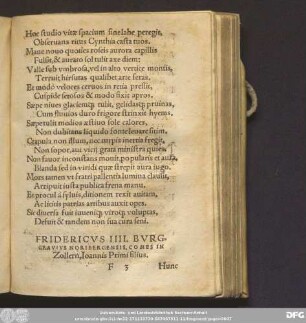 Hoc studio vitæ spacium sine labe peregit,
Obseruans ritus Cynthia casta tuos.
Mane nouo quoties roseis aurora capillis
Fulsit, & aurato sol tulit axe diem:
Valle sub vmbrosa, vel in alto vertice montis,
Terruit hirsutas qualibet arte feras.
Et modò velores ceruos in retia pressit,
Cuspide setosos & modo fixit apros.
Sæpe niues glaciemq; tulit, gelidasq; pruinas,
Cum fluuios duro frigore strinxit hyems.
Sæpe tulit medios æstiuo sole calores,
Non dubitans liquido fonte leuare sitim.
Crapula non illum, nec turpis inertia fregit,
Non sopor, aut vitij grata ministra quies.
Non fauor inconstans mouit, popularis et aura,
Blanda sed in viridi quæ strepit aura iugo.
Mors tamen vt fratri pallentia lumina clausit,
Arripuit iusta publica frena manu.
Et procul à syluis, ditionem rexit auitam,
Ac licitis patrias artibus auxit opes.
Sic diuersa fuit iuuenisq; virisq; voluptas,
Desuit & tandem non sua cura seni.
FRIDERICVS IIII. BVRG-
GRAVIVS NORIBERGENSIS, COMES IN
Zollern, Ioannis Primi filius.
F 3 Hunc